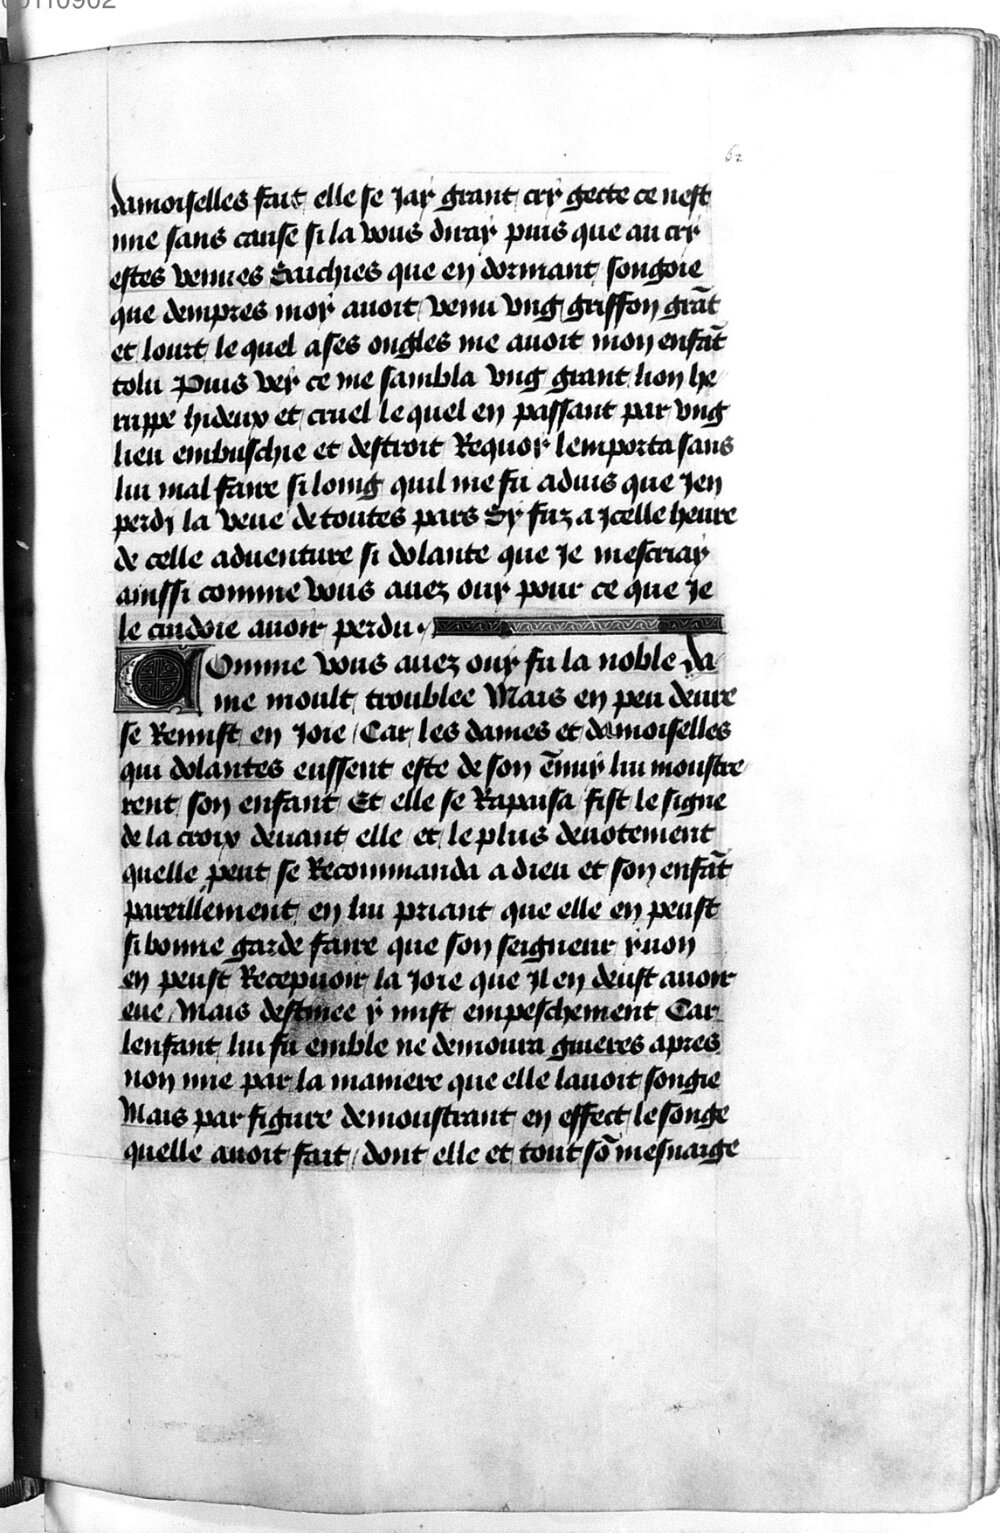 00110902
62
damoiselles fait elle se Jay grant cry gecte ce nest
mie sans cause si la vous diray puis que au cry
estes venues Saichies que en dormant songoie
que dempres moy auoit venu vng griffon grāt
et lourt le quel a ses ongles me auoit mon enfāt
tolu Puis vey ce me sambla vng grant lion he
ruppe hideux et cruel le quel en passant par vng
lieu embuschie et destroit Requoy lemporta sans
lui mal faire si loing quil me fu aduis que Jen
perdi la veue de toutes pars Sy fuz a Jcelle heure
de celle aduenture si dolante que Je mescriay
ainssi comme vous auez ouy pour ce que Je
le cuidoie auoir perdu.
Comme vous auez ouy fu la noble da
me moult troublee Mais en peu deure
se Remist en Joie Car les dames et damoiselles
qui dolantes eussent este de son ēnuy lui moustre
rent son enfant Et elle se Rapaisa fist le signe
de la croix deuant elle et le plus deuotement
quelle peut se Recommanda a dieu et son enfāt
pareillement en lui priant que elle en peust
si bonne garde faire que son seigneur yuon
en peust Recepuoir la Joie que Jl en deust auoir
eue Mais destinee y mist empeschement Car
lenfant lui fu emble ne demoura guieres apres
non mie par la maniere que elle lauoit songie
Mais par figure demoustrant en effect le songe
quelle auoit fait dont elle et tout sō mesnaige